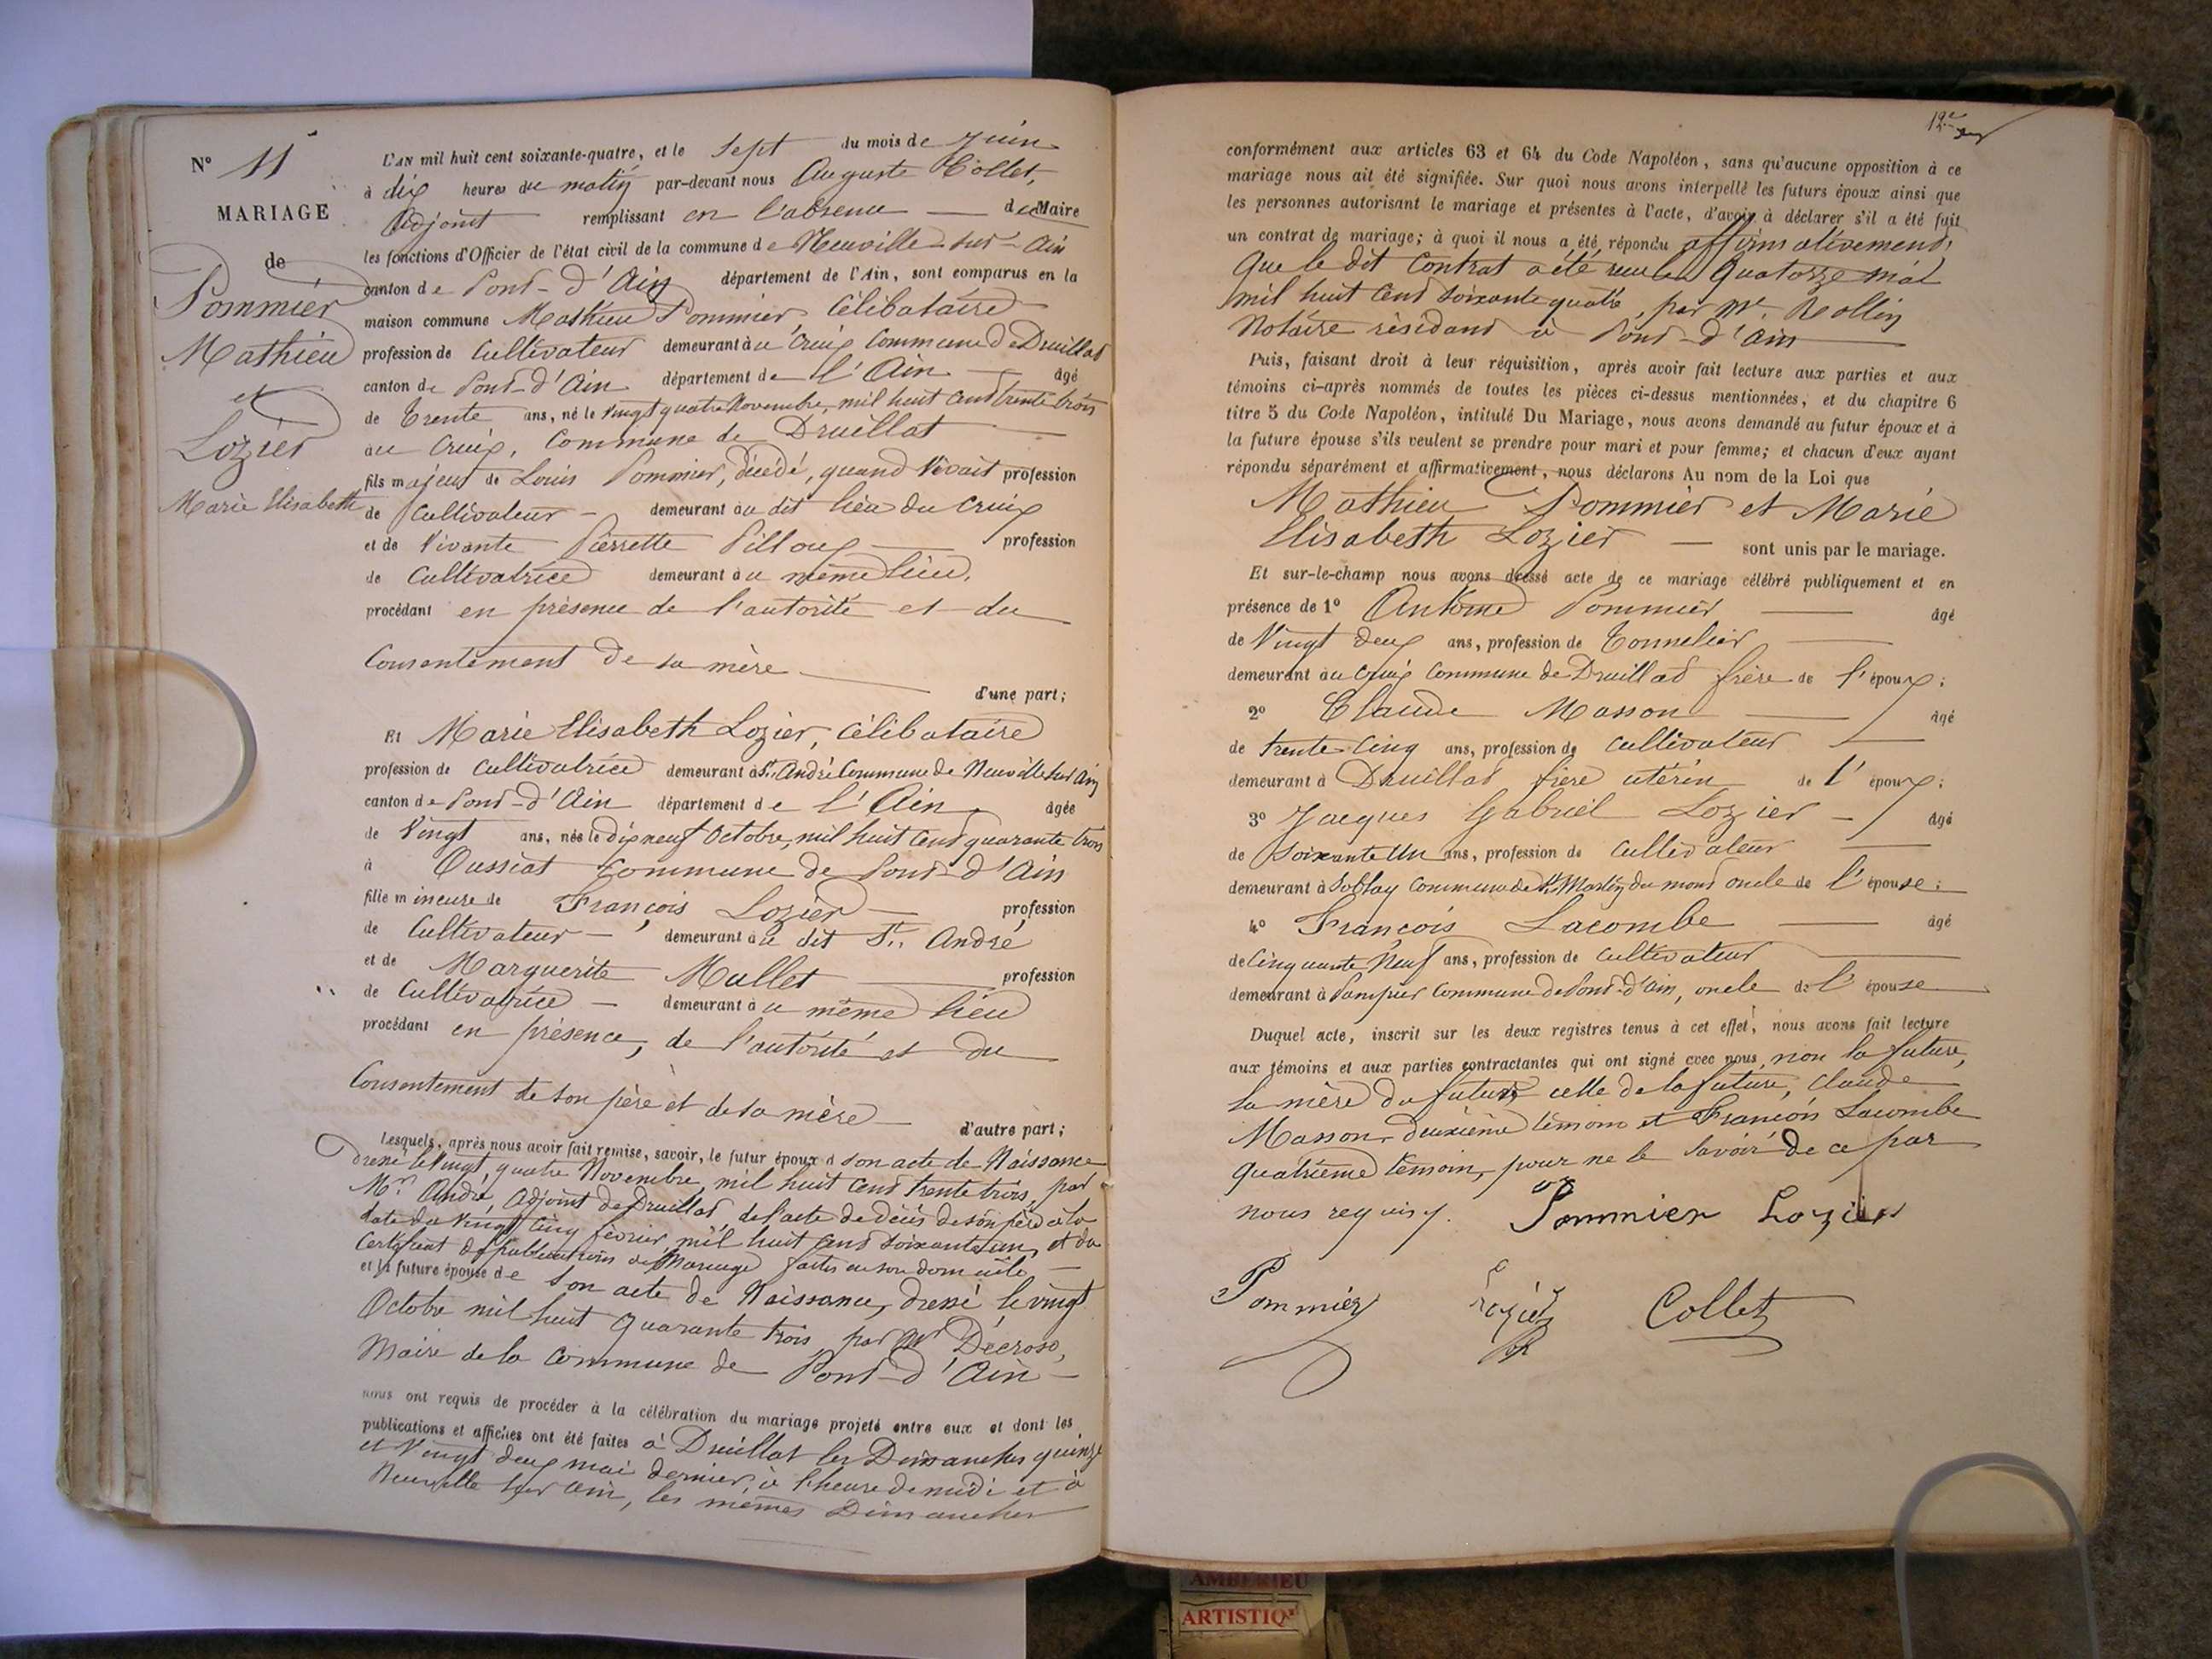 N° 11
MARIAGE
de
Pommier
Mathieu
et
Lozier
Marie Elisabeth
L'AN mil huit cent soixante-quatre, et le Sept du mois de Juin
à dix heures du matin par-devant nous Auguste Collet,
Adjoint remplissant en l'absence du Maire
les fonctions d'Officier de l'état civil de la commune de Neuville-sur-Ain
canton de Pont-d'Ain département de l'Ain, sont comparus en la
maison commune Mathieu Pommier Célibataire
profession de Cultivateur demeurant au Cruix Commune de Druillat
canton de Pont-d'Ain département de l'Ain âgé
de Trente ans, né le Vingt quatre Novembre, mil huit cent trente trois
au Cruix, Commune de Druillat
fils majeur de Louis Pommier, décédé, quand Vivait profession
de Cultivateur demeurant au dit lieu du Cruix
et de Vivante Pierrette Pilloux profession
de Cultivatrice demeurant au même lieu,
procédant en présence de l'autorité et du
Consentement de sa mère
d'une part;
Et Marie Elisabeth Lozier, Célibataire
profession de Cultivatrice demeurant à St. André Commune de Neuville sur Ain
canton de Pont-d'Ain département de l'Ain, âgée
de Vingt ans, née le Dix neuf Octobre, mil huit cent quarante trois
à Oussiat Commune de Pont-d'Ain
fille mineure de François Lozier profession
de Cultivateur demeurant au dit St. André
et de Marguerite Mallet profession
de Cultivatrice demeurant au même lieu
procédant en présence, de l'autorité et du
Consentement de son père et de sa mère
d'autre part;
Lesquels, après nous avoir fait remise, savoir, le futur époux d son acte de Naissance
Dressé le Vingt, quatre Novembre, mil huit cent trente trois, par
Mr. André, Adjoint de Druillat, de l'acte de décès de son père à la
date du Vingt Cinq février mil huit cent soixante un, et du
Certificat de publications de Mariage faites en son domicile
et la future épouse de son acte de Naissance, dressé le vingt
Octobre mil huit quarante trois, par Mr Décroso,
Maire de la Commune de Pont-d'Ain
nous ont requis de procéder à la célébration du mariage projeté entre eux et dont les
publications et affiches ont été faites à Druillat les Dimanches quinze
et Vingt deux mai dernier, à l'heure de midi et à
Neuville sur Ain, les mêmes Dimanches
12e
conformément aux articles 63 et 64 du Code Napoléon, sans qu'aucune opposition à ce
mariage nous ait été signifiée. Sur quoi nous avons interpellé les futurs époux ainsi que
les personnes autorisant le mariage et présentes à l'acte, d'avoir à déclarer s'il a été fait
un contrat de mariage; à quoi il nous a été répondu affirmativement,
Que le dit Contrat a été reçu le Quatorze mai
mil huit cent soixante quatre, par Me. Rollin
Notaire résidant à Pont-d'Ain
Puis, faisant droit à leur réquisition, après avoir fait lecture aux parties et aux
témoins ci-après nommés de toutes les pièces ci-dessus mentionnées, et du chapitre 6
titre 5 du Code Napoléon, intitulé Du Mariage, nous avons demandé au futur époux et à
la future épouse s'ils veulent se prendre pour mari et pour femme; et chacun d'eux ayant
répondu séparément et affirmativement, nous déclarons Au nom de la Loi que
Mathieu Pommier et Marie
Elisabeth Lozier sont unis par le mariage.
Et sur-le-champ nous avons dressé acte de ce mariage célébré publiquement et en
présence de 1° Antoine Pommier âgé
de Vingt deux ans, profession de Tonnelier
demeurant au Cruix Commune de Druillat frère de l'époux;
2° Claude Masson âgé
de trente-Cinq ans, profession de Cultivateur
demeurant à Druillat frère utérin de l'époux;
3° Jacques Gabriel Lozier âgé
de Soixante Un ans, profession de Cultivateur
demeurant à Soblay Commune de St. Martin du mont oncle de l'épouse;
4° François Lacombe âgé
de Cinquante Neuf ans, profession de Cultivateur
demeurant à Pampier Commune de Pont-d'Ain, oncle de l'épouse
Duquel acte, inscrit sur les deux registres tenus à cet effet, nous avons fait lecture
aux témoins et aux parties contractantes qui ont signé avec nous, non la future,
la mère du futur, celle de la future, Claude
Masson deuxième témoin et François Lacombe
quatrième témoin, pour ne le Savoir de ce par
nous requis.
Pommier Lozier
Pommier Lozier Collet
AMBERIEU
ARTISTIQ